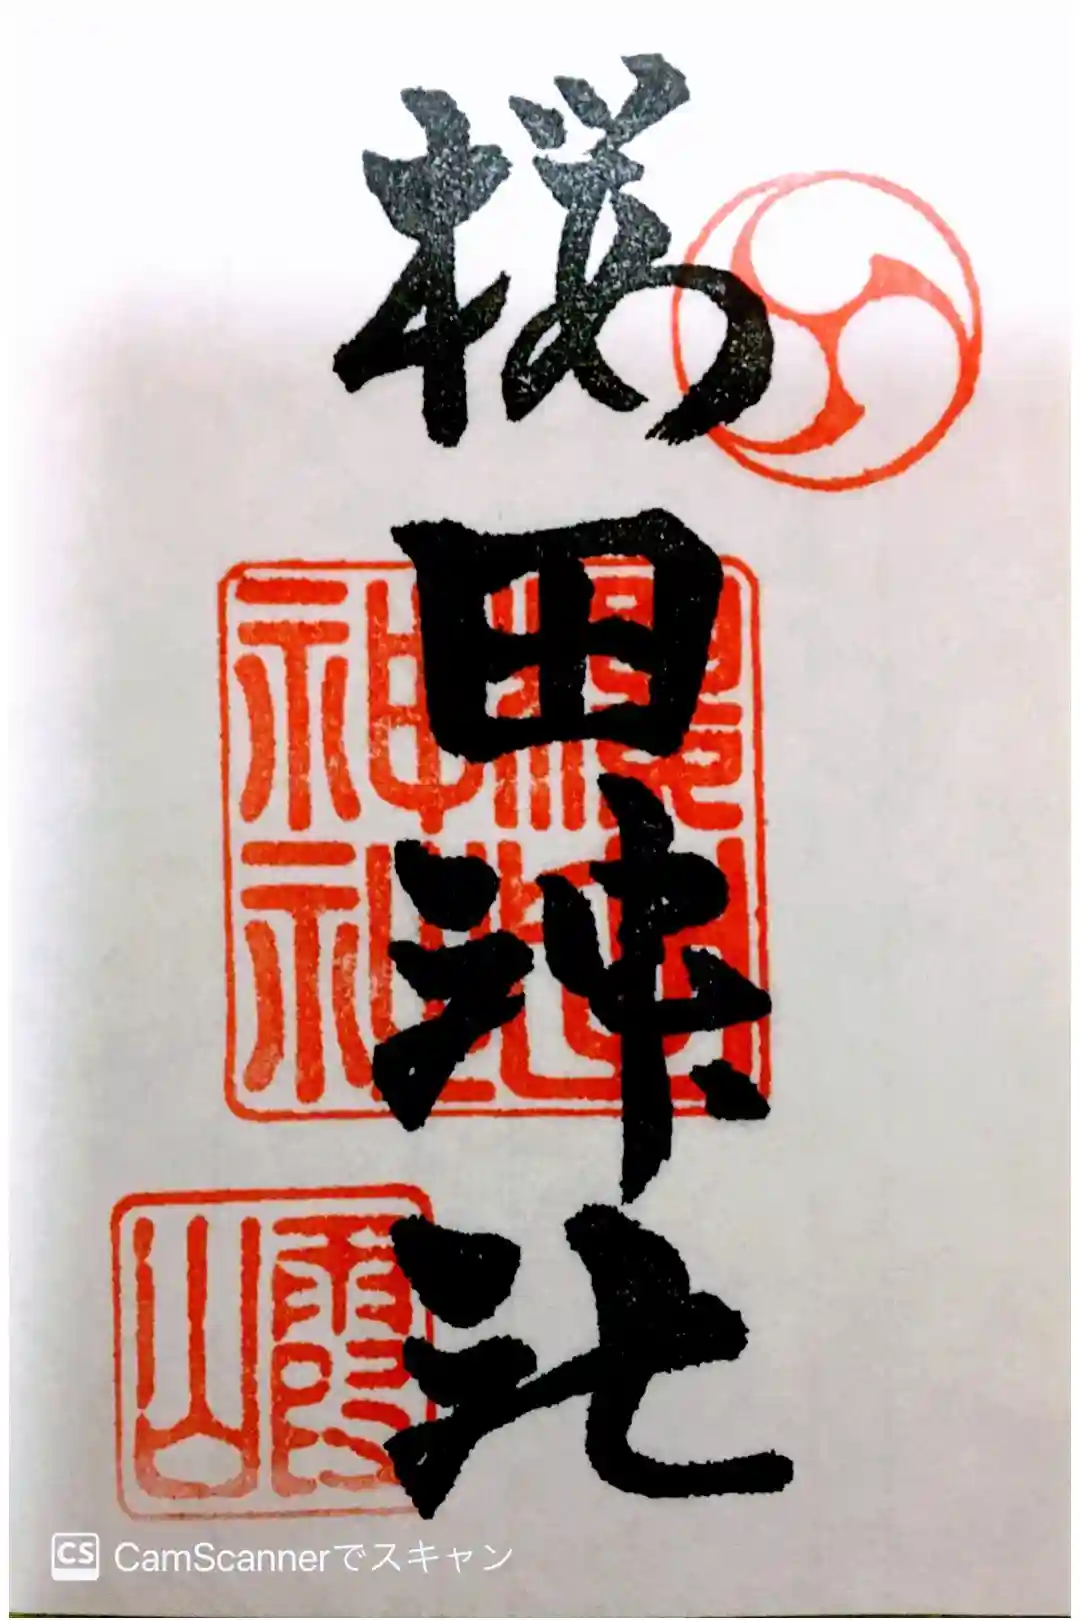 桜田神社
神社
霞山
CamScannerでスキャン